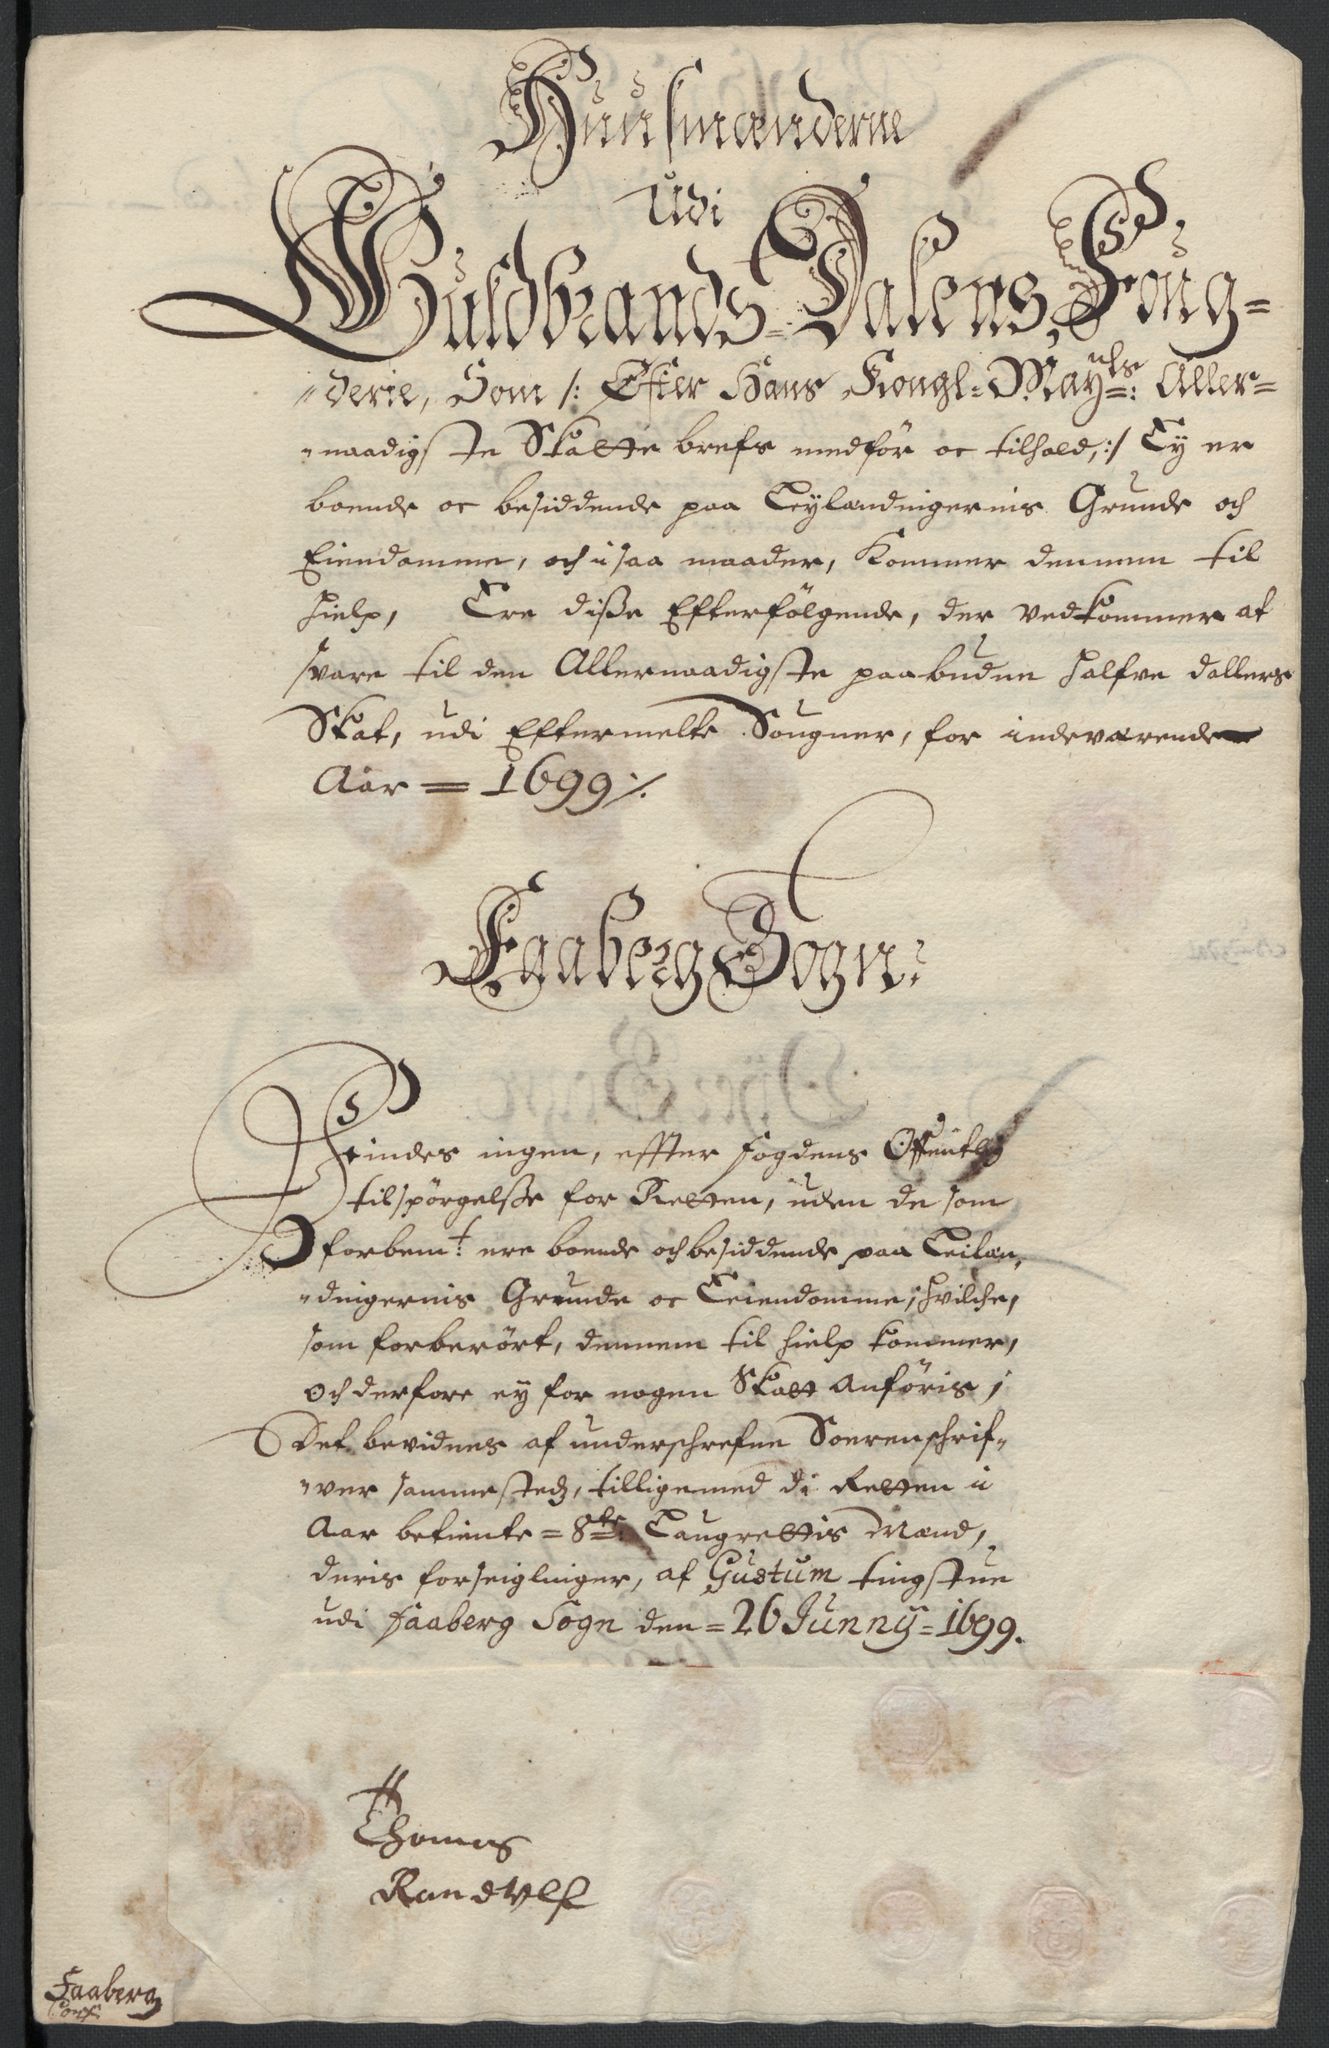 Huusmænderne
Udi
Guldbrands-Dalens Foug=
derie, Som /: Efter Hans Kongl: May:ts Aller=
naadigste Skatte brefs medför oc tilhold, :/ Ey er
boende oc besiddende paa Leylændingernis Grunde och
Eiendomme, och i saa maader, kommer dennem til
hielp, Ere disse Efterfölgende, der vedkommer at
svare til den Allernaadigste paabudne halfve dallers
Skat, udi Eftermelte Sougner, for indeværende
Aar = 1699 ⁒.
Faaberg Sogn:
Findes ingen, effter fogdens Offentlig
tilspörgelsse for Retten, uden de som
forbemt: ere boende och besiddende paa Leilæn,
dingernis Grunde oc Eiendomme, hvilche,
som forberört, dennem til hielp kommer,
Och derfore ey for nogen Skatt anföris,
Det bevidnes af underschrefne Sorenschrif,
ver sammestedz, tilligemed di Retten i
Aar betiente = 8te: Laugrettis Mænd,
deris forseiglinger, af Gustum tingstue
udi Faaberg Sogn den = 26 Junny = 1699.
Thomas
Randulf
Faaberg